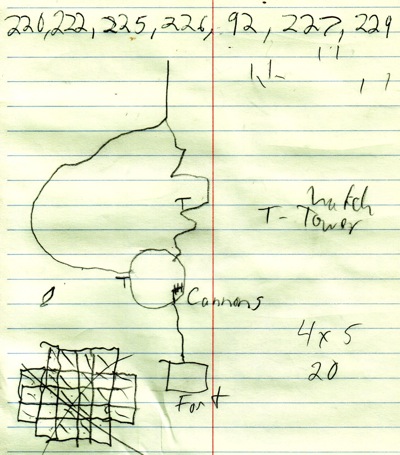 220, 222, 225, 226, 92, 227, 229
T
T - Watch
Tower
T
Cannons
4 x 5
20
Fort